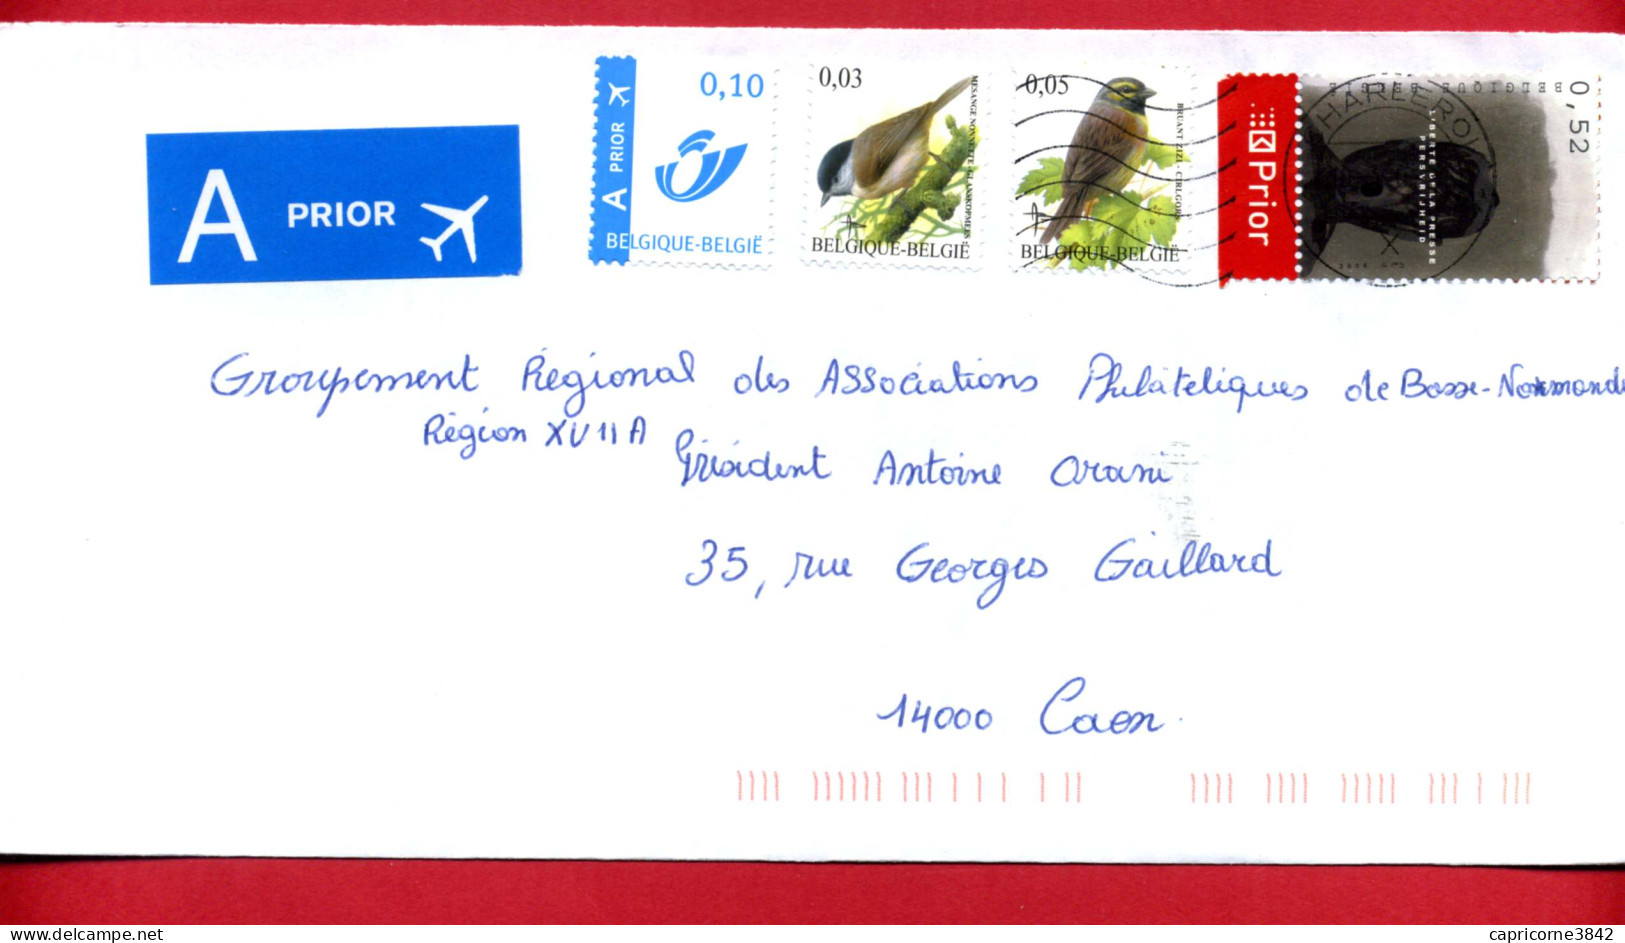 A PRIOR
A PRIOR
0,10
BELGIQUE-BELGIË
0,03
MESANGE NONNETTE
BELGIQUE-BELGIË
0,05
BRUANT ZIZI - CIRLGORS
BELGIQUE-BELGIË
Prior
CHARLEROI X
X
LIBERTE DE LA PRESSE
PERSVRIJHEID
0,52
Groupement Régional des Associations Philatéliques de Basse-Normandie
Région XVII A
Président Antoine Orani
35, rue Georges Gaillard
14000 Caen
www.delcampe.net
capricorne3842